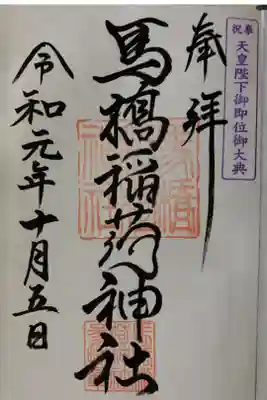 奉祝
天皇陛下御即位御大典
奉拝
馬橋稲荷神社
令和元年十月五日